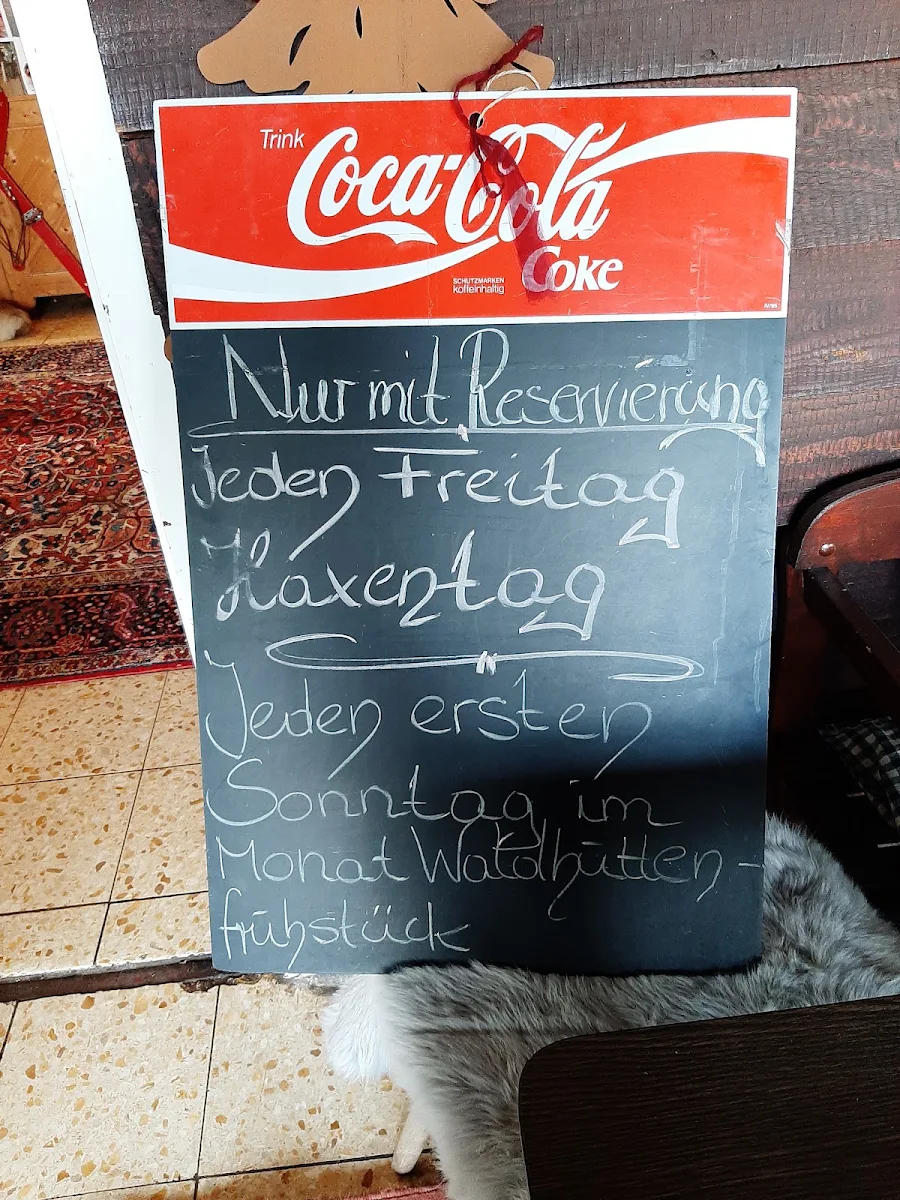 Trink
Coca-Cola
Coke
SCHUTZMARKEN
koffeinhaltig
Nur mit Reservierung
Jeden Freitag
Haxentag
Jeden ersten
Sonntag im
Monat Waldhütten-
frühstück